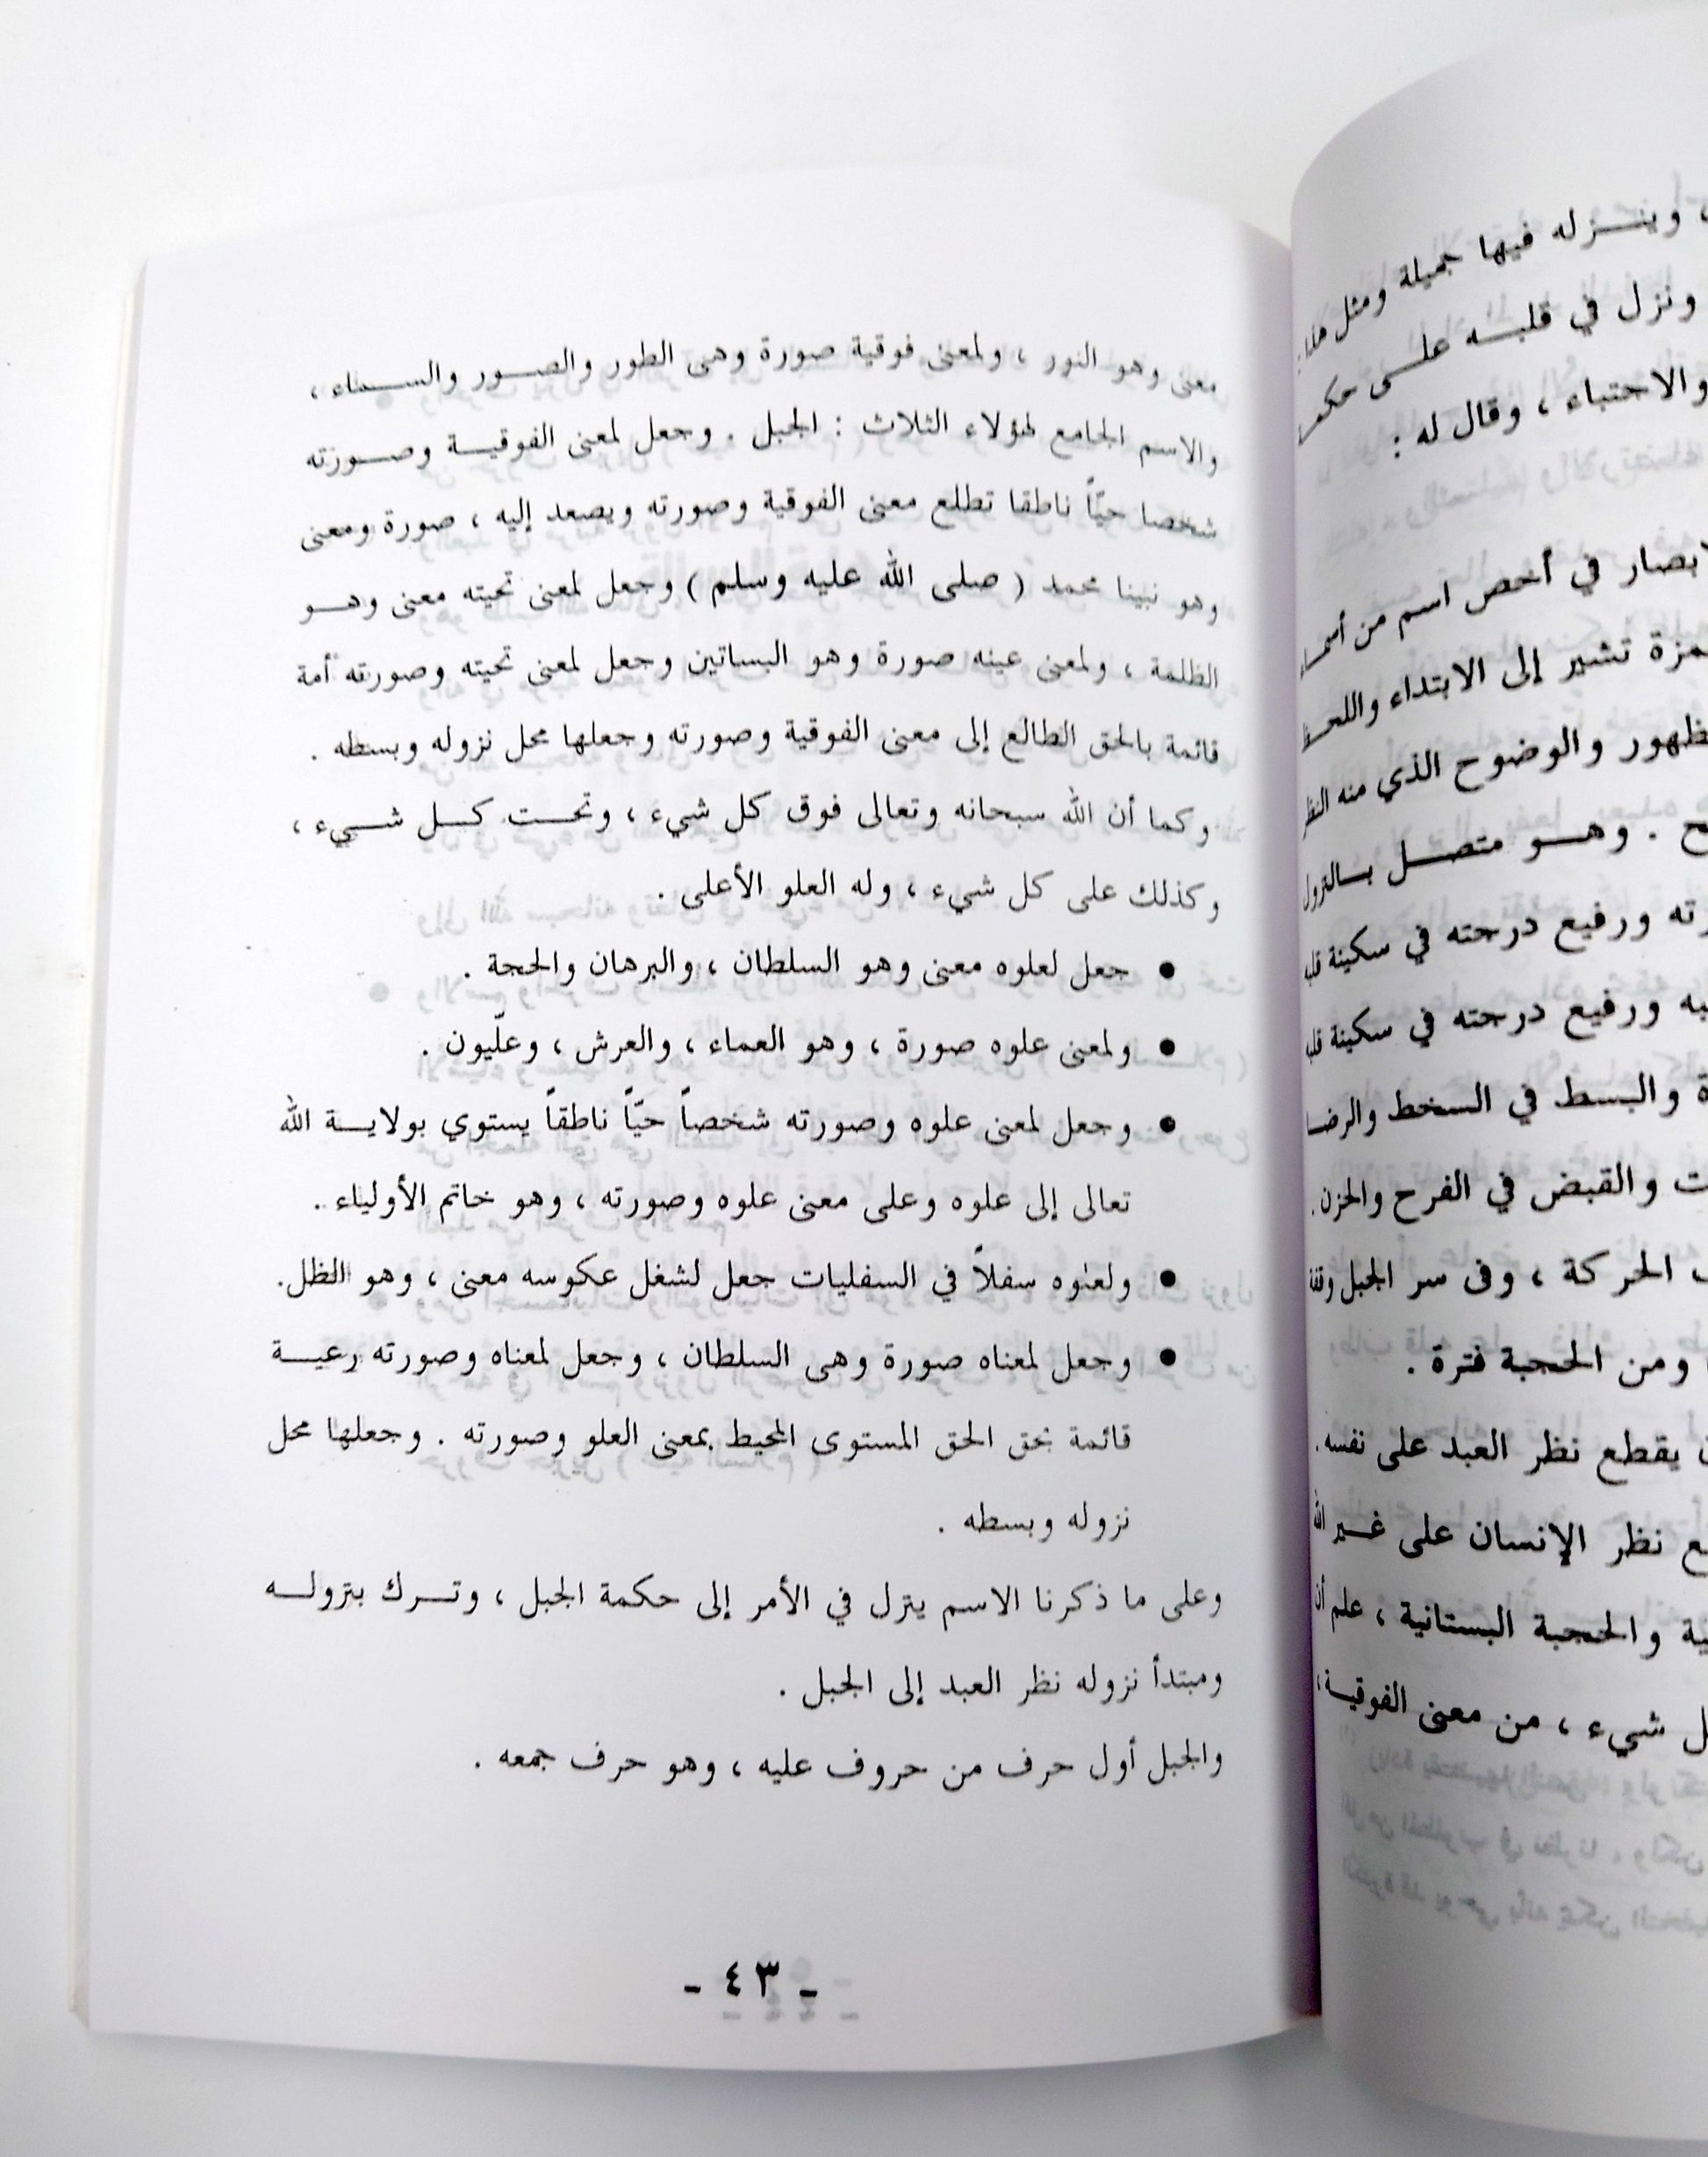 ، وينـــزله فيها جميلة ومثل هذا
ونزل في قلبـــه علـــى حكم
والاجتباء ، وقال له :
لابصار في أخص اسم من أسماء
مزة تشير إلى الابتداء واللحظ
ظهور والوضوح الذي منه النظر
ح . وهـــو متصـــل بـــالنزول
رته ورفيع درجته في سكينة قلبه
به ورفيع درجته في سكينة قلبه
ة والبسط في السخط والرضـــا
ت والقبض في الفرح والحزن .
الحركة ، وفى سر الجبل وقفة
ومن الحجبة فترة .
ن يقطع نظر العبد على نفسه .
ع نظر الإنسان على غـــير الله
ية والحجبة البستانية ، علم أن
ل شيء ، من معنى الفوقيـــة ،
معنى وهو النور ، ولمعنى فوقية صورة وهى الطور والصـــور والســـماء ،
والاسم الجامع لهؤلاء الثلاث : الجبل . وجعل لمعنى الفوقيـــة وصـــورته
شخصا حيّاً ناطقا تطلع معنى الفوقية وصورته ويصعد إليه ، صورة ومعنى
وهو نبينا محمد ( صلى الله عليه وسلم ) وجعل لمعنى تحيته معنى وهـــو
الظلمة ، ولمعنى عينه صورة وهو البساتين وجعل لمعنى تحيته وصورته أمة
قائمة بالحق الطالع إلى معنى الفوقية وصورته وجعلها محل نزوله وبسطه .
وكما أن الله سبحانه وتعالى فوق كل شيء ، وتحـــت كـــل شـــيء ،
وكذلك على كل شيء ، وله العلو الأعلى .
• جعل لعلوه معنى وهو السلطان ، والبرهان والحجة .
• ولمعنى علوه صورة ، وهو العماء ، والعرش ، وعلّيون .
• وجعل لمعنى علوه وصورته شخصاً حيّاً ناطقاً يستوي بولايـــة الله
تعالى إلى علوه وعلى معنى علوه وصورته ، وهو خاتم الأولياء .
• ولعلوه سفلاً في السفليات جعل لشغل عكوسه معنى ، وهو الظل .
• وجعل لمعناه صورة وهى السلطان ، وجعل لمعناه وصورته رعيـــة
قائمة بحق الحق المستوى المحيط بمعنى العلو وصورته . وجعلها محل
نزوله وبسطه .
وعلى ما ذكرنا الاسم ينزل في الأمر إلى حكمة الجبل ، وتـــرك بنزولـــه
ومبتدأ نزوله نظر العبد إلى الجبل .
والجبل أول حرف من حروف عليه ، وهو حرف جمعه .
- ٤٣ -